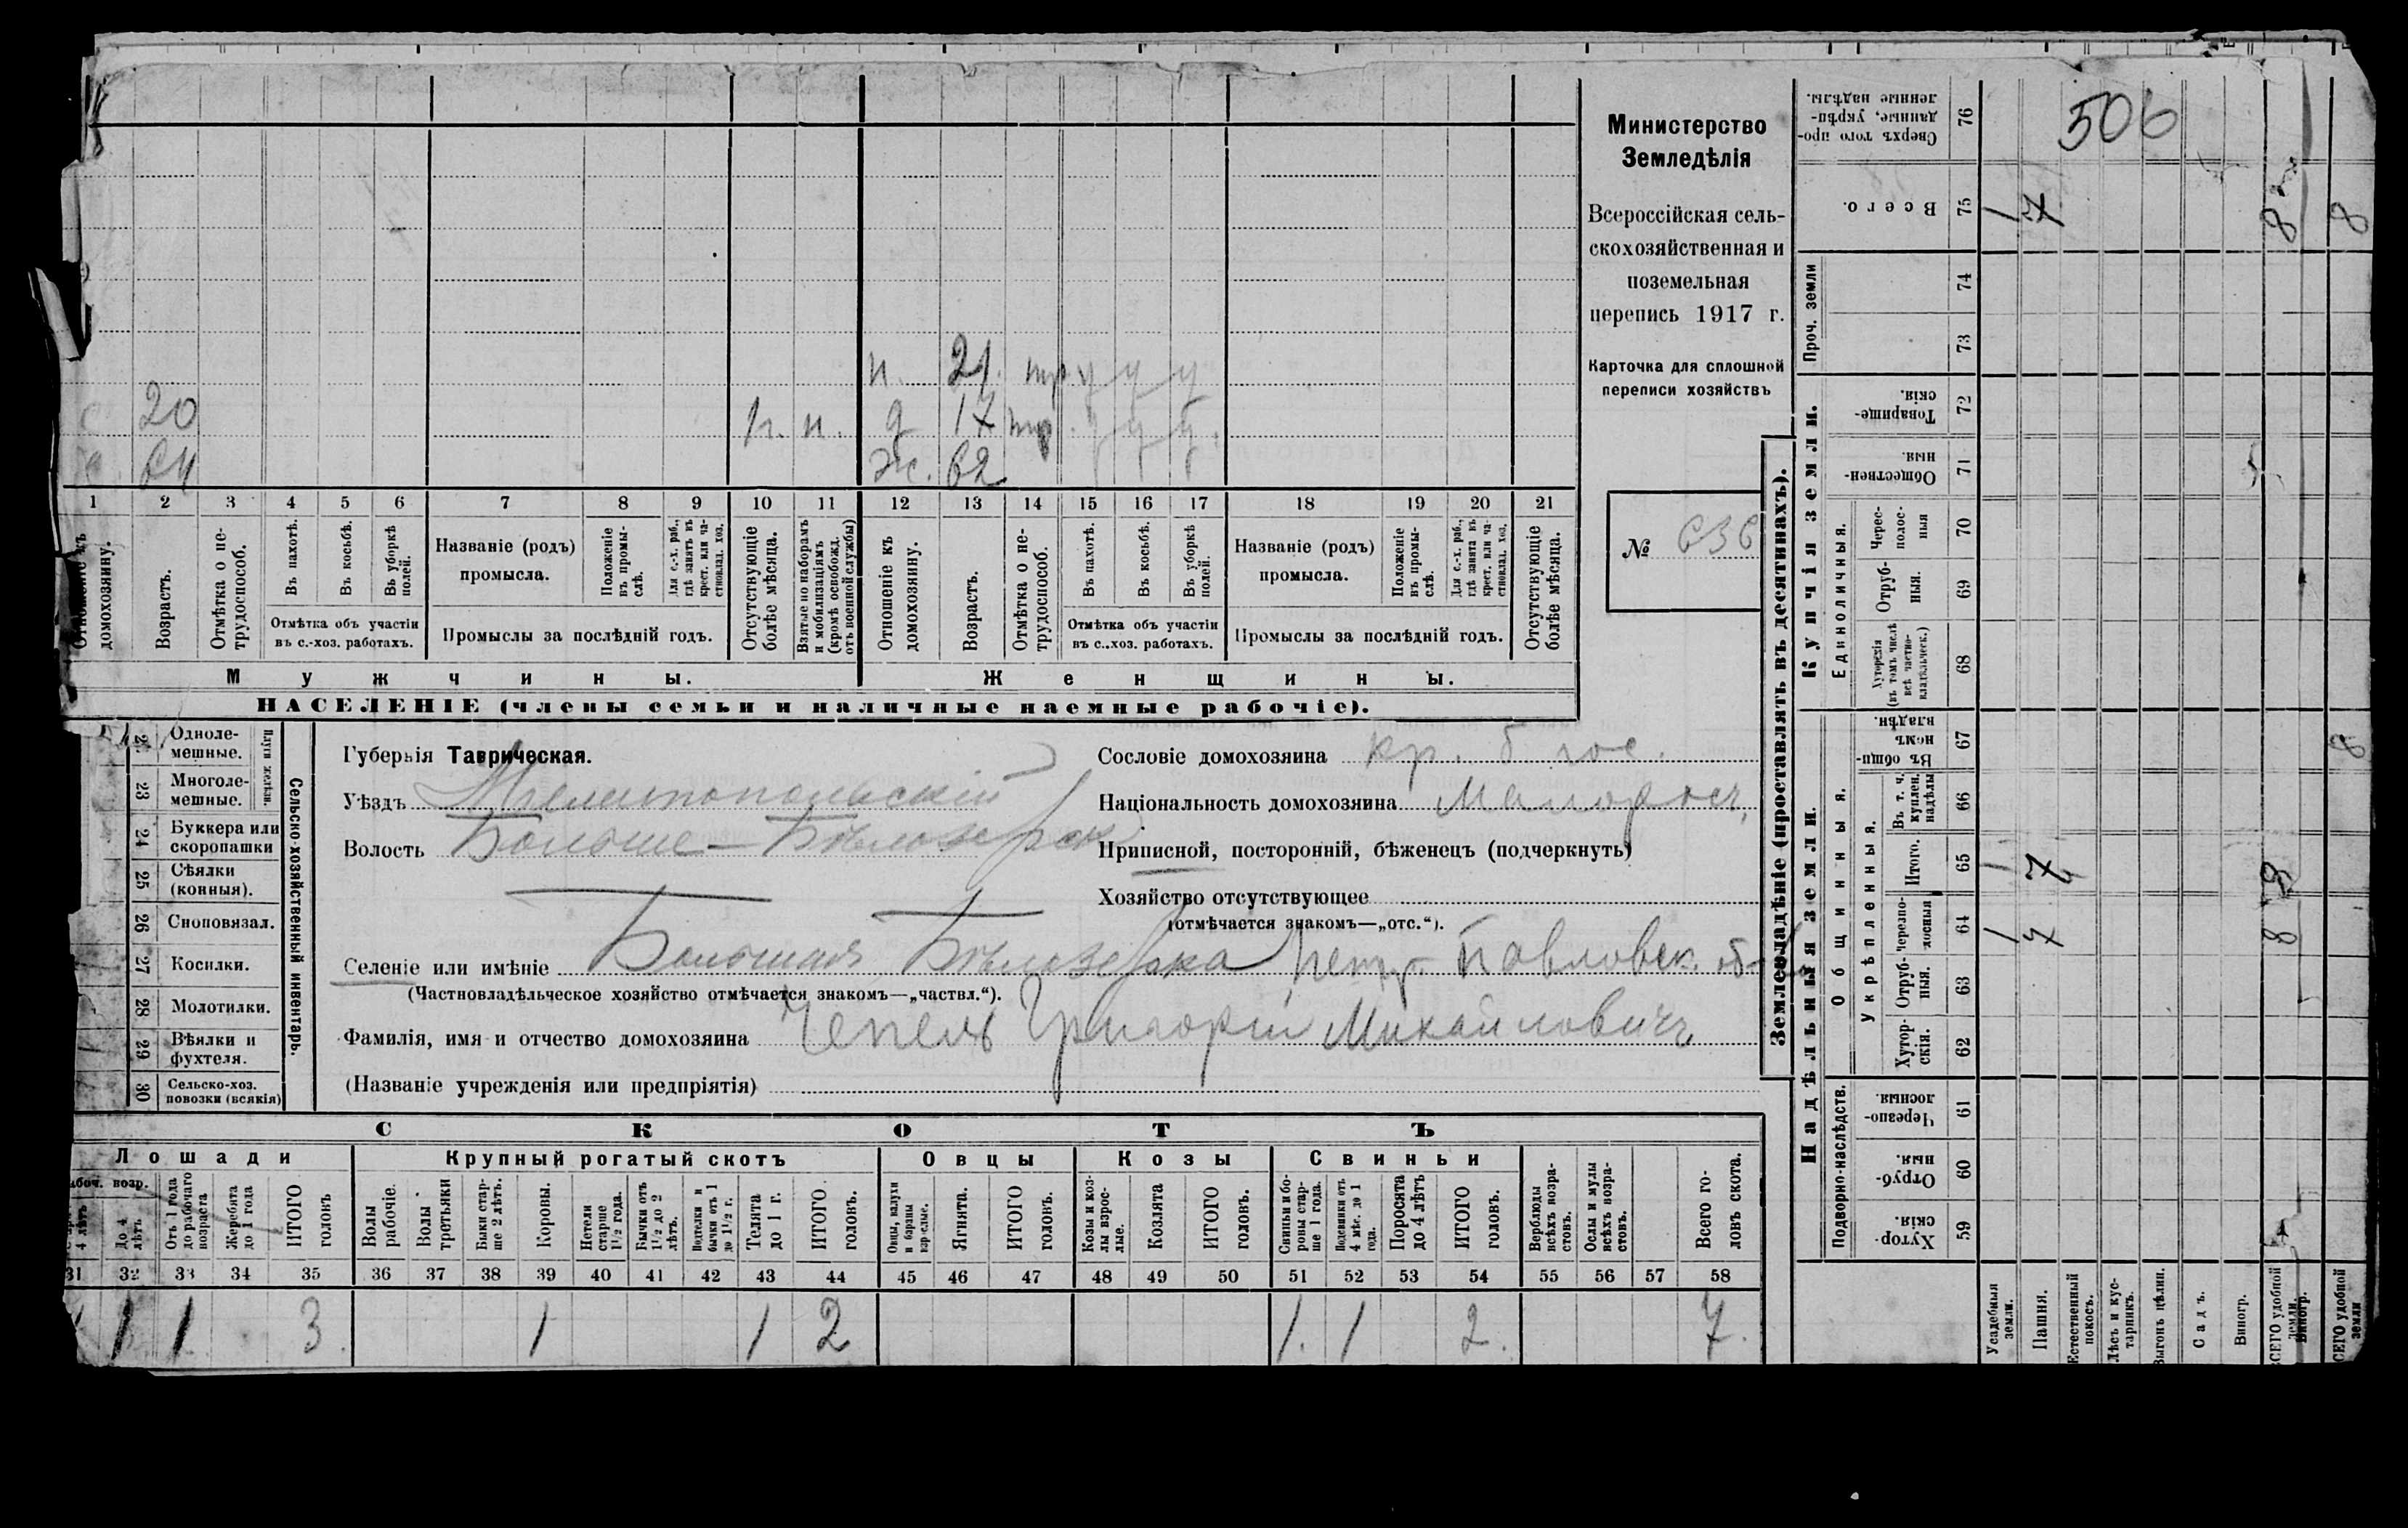 506
Министерство
Земледѣлія
Всероссійская сель-
скохозяйственная и
поземельная
перепись 1917 г.
Карточка для сплошной
переписи хозяйствъ
№ 636
н. 21. тр у у у
20 н. н. д 17 тр. у у у.
64 ж. 62
1 2 3 4 5 6 7 8 9 10 11 12 13 14 15 16 17 18 19 20 21
Отношеніе къ домохозяину.
Возрастъ.
Отмѣтка о не-трудоспособ.
Въ пахотѣ.
Въ косьбѣ.
Въ уборкѣ полей.
Отмѣтка объ участіи
въ с.-хоз. работахъ.
Названіе (родъ)
промысла.
Положеніе въ промы-слѣ.
Для с.-х. раб., гдѣ занятъ въ крест. или ча-стновлад. хоз.
Промыслы за послѣдній годъ.
Отсутствующіе болѣе мѣсяца.
Взятые по наборамъ и мобилизаціямъ (кромѣ освобожд. отъ военной службы)
Отношеніе къ домохозяину.
Возрастъ.
Отмѣтка о не-трудоспособ.
Въ пахотѣ.
Въ косьбѣ.
Въ уборкѣ полей.
Отмѣтка объ участіи
въ с..хоз. работахъ.
Названіе (родъ)
промысла.
Положеніе въ промы-слѣ.
Для с.-х. раб., гдѣ занята въ крест. или ча-стновлад. хоз.
Промыслы за послѣдній годъ.
Отсутствующіе болѣе мѣсяца.
Мужчины. Женщины.
НАСЕЛЕНІЕ (члены семьи и наличные наемные рабочіе).
Сельско-хозяйственный инвентарь.
Одноле-мешные.
23 Многоле-мешные.
24 Буккера или скоропашки
25 Сѣялки (конныя).
26 Сноповязал.
27 Косилки.
28 Молотилки.
29 Вѣялки и фухтеля.
30 Сельско-хоз. повозки (всякія)
Губернія Таврическая.
Уѣздъ Мелитопольскій
Волость Больше-Бѣлозерск
Сословіе домохозяина кр. б гос.
Національность домохозяина Малоросъ
Приписной, посторонній, бѣженецъ (подчеркнуть)
Хозяйство отсутствующее
(отмѣчается знакомъ—„отс.“).
Селеніе или имѣніе Большая Бѣлозерка Петр. Павловск. об
(Частновладѣльческое хозяйство отмѣчается знакомъ—„частвл.“).
Фамилія, имя и отчество домохозяина Чепель Григорій Михайловичъ
(Названіе учрежденія или предпріятія)
СКОТЪ
Лошади Крупный рогатый скотъ Овцы Козы Свиньи
До 4 лѣтъ
Отъ 1 года до рабочаго возраста
Жеребята до 1 года
ИТОГО головъ
Волы рабочіе.
Волы третьяки
Быки стар-ше 2 лѣтъ.
Коровы.
Нетели старше 1½ года.
Бычки отъ 1½ до 2 лѣтъ.
Подтелки и бычки отъ 1 до 1½ г.
Телята до 1 г.
ИТОГО головъ.
Овцы, валухи и бараны взрослые.
Ягнята.
ИТОГО головъ.
Козы и коз-лы взрос-лые.
Козлята
ИТОГО головъ.
Свиньи и бо-ровы стар-ше 1 года.
Подсвинки отъ 4 мѣс. до 1 года.
Поросята до 4 лѣтъ
ИТОГО головъ.
Верблюды всѣхъ возра-стовъ.
Ослы и мулы всѣхъ возра-стовъ.
Всего го-ловъ скота.
31 32 33 34 35 36 37 38 39 40 41 42 43 44 45 46 47 48 49 50 51 52 53 54 55 56 57 58
1 1 3 1 1 2 1. 1 2. 7.
Землевладѣніе (проставлять въ десятинахъ).
Купчія земли.
Надѣльныя земли.
76 Сверхъ того про-данные, укрѣп-ленные надѣлы.
75 Всего. 1 7 8 8
Проч. земли
74
73
72 Товарище-скія.
71 Обществен-ныя.
Единоличныя.
70 Черес-полос-ныя
69 Отруб-ныя.
68 Хуторскія (въ томъ числѣ всѣ частно-владѣльческ.)
67 Въ общи-номъ владѣн. 8
Общинныя.
Укрѣпленныя.
66 Въ т. ч. куплен. надѣлы
65 Итого. 1 7 8
64 Черезпо-лосныя 1 7 8
63 Отруб-ныя.
62 Хутор-скія.
Подворно-наслѣдств.
61 Черезпо-лосныя.
60 Отруб-ныя.
59 Хутор-скія.
Усадебныя земли.
Пашня.
Естественный покосъ.
Лѣсъ и кус-тарникъ.
Выгонъ цѣлин.
Садъ.
Виногр.
ВСЕГО удобной земли.
ВСЕГО удобной земли